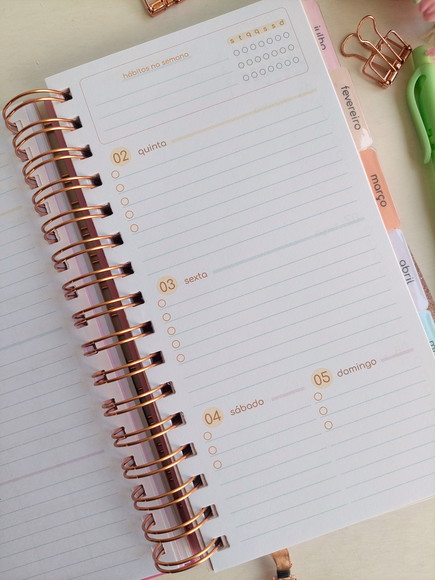 hábitos na semana
s t q q s s d
02 quinta
03 sexta
04 sábado
05 domingo
julho
fevereiro
março
abril